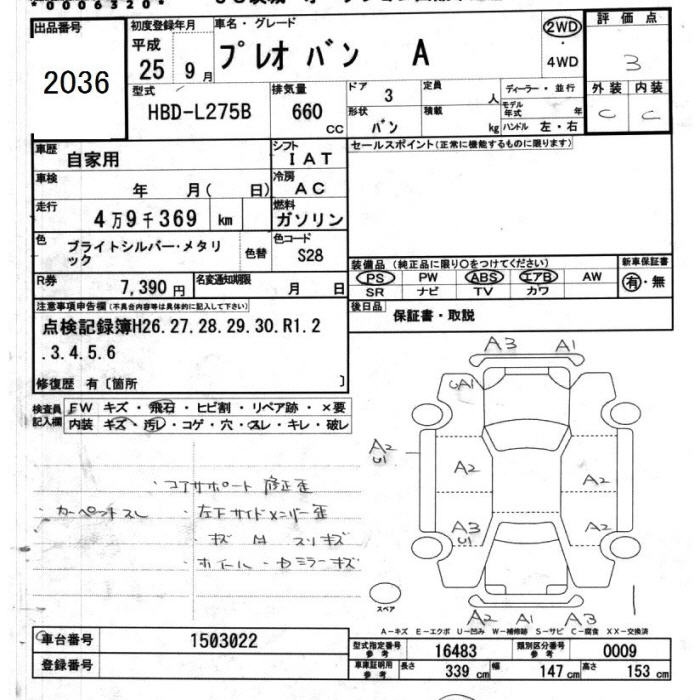 *0006320*
出品番号
2036
初度登録年月
平成
25 9月
車名・グレード
プレオ バン A
2WD
・
4WD
評価点
3
外装 内装
C C
型式
HBD-L275B
排気量
660
cc
ドア
3
定員
人
形状
バン
積載
kg
ディーラー・並行
モデル年式 年
ハンドル 左・右
車歴
自家用
シフト
IAT
セールスポイント(正常に機能するものに限ります)
車検
年 月( 日)
冷房
AC
走行
4万9千369 km
燃料
ガソリン
色
ブライトシルバー・メタリック
色替
色コード
S28
装備品 (純正品に限り○をつけてください)
新車保証書
PS PW ABS エアB AW
SR ナビ TV カワ
有・無
R券
7,390円
名変通知期限
月 日
後日品
保証書・取説
注意事項申告欄(不具合内容等は具体的に記入して下さい)
点検記録簿H26.27.28.29.30.R1.2
.3.4.5.6
修復歴 有〔箇所 〕
検査員
記入欄
FW キズ・飛石・ヒビ割・リペア跡・×要
内装 キズ・汚レ・コゲ・穴・スレ・キレ・破レ
・コアサポート 修正歪
・カーペットスレ
・左下サイドメンバー歪
キズ 凹 スリキズ
・ホイール・
ミラーキズ
A3 A1
A1
A2
U1
A2
A2
A3
U1
A2
スペア
A2 A1 A3
A-キズ E-エクボ U-凹み W-補修跡 S-サビ C-腐食 XX-交換済
車台番号
1503022
登録番号
型式指定番号
参考
16483
類別区分番号
参考
0009
車庫証明用
参考
長さ
339 cm
幅
147 cm
高さ
153 cm